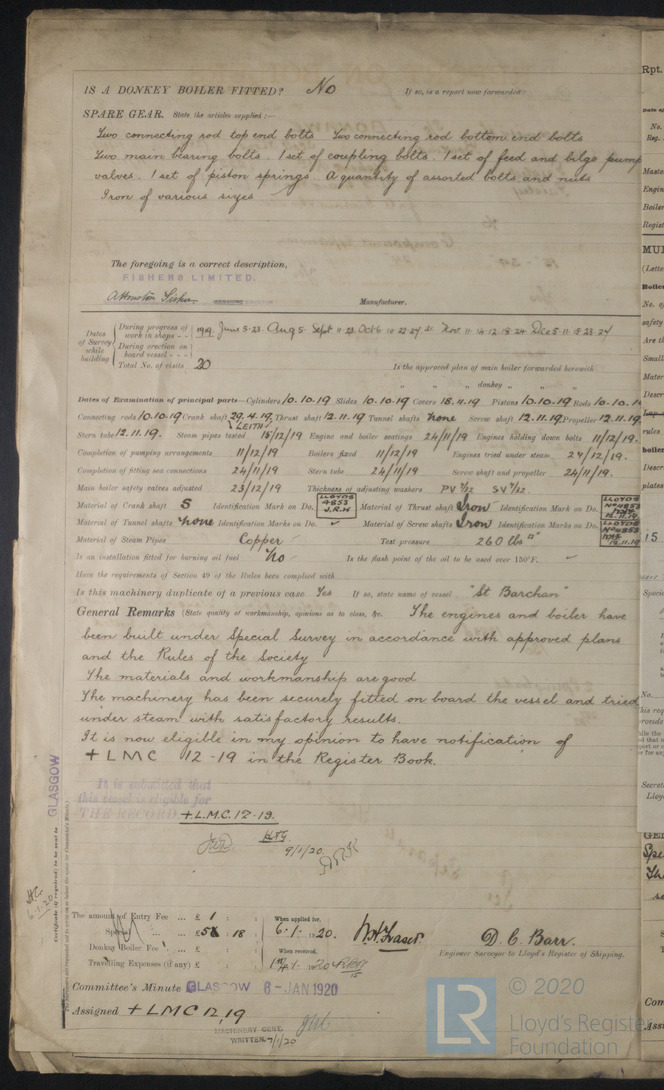 IS A DONKEY BOILER FITTED? No If so, is a report now forwarded?
SPARE GEAR. State the articles supplied :—
Two connecting rod top end bolts Two connecting rod bottom end bolts
Two main bearing bolts. 1 set of coupling bolts. 1 set of feed and bilge pump
valves. 1 set of piston springs A quantity of assorted bolts and nuts
Iron of various sizes
The foregoing is a correct description,
FISHERS LIMITED.
Manufacturer.
Dates of Survey while building
During progress of work in shops - - 1919 June 5. 23. Aug 5. Sept 11 23 Oct 6 10 22 27 31 Nov. 11 14 12 18 24 Dec 5. 11 15 23 24
During erection on board vessel - - -
Total No. of visits 20 Is the approved plan of main boiler forwarded herewith
" " donkey " " "
Dates of Examination of principal parts—Cylinders 10.10.19 Slides 10.10.19 Covers 18.11.19 Pistons 10.10.19 Rods 10.10.1
Connecting rods 10.10.19 Crank shaft 29.4.19 Thrust shaft 12.11.19 Tunnel shafts none Screw shaft 12.11.19 Propeller 12.11.19.
LEITH
Stern tube 12.11.19. Steam pipes tested 15/12/19 Engine and boiler seatings 24/11/19 Engines holding down bolts 11/12/19.
Completion of pumping arrangements 11/12/19 Boilers fixed 11/12/19 Engines tried under steam 24/12/19.
Completion of fitting sea connections 24/11/19 Stern tube 24/11/19 Screw shaft and propeller 24/11/19.
Main boiler safety valves adjusted 23/12/19 Thickness of adjusting washers PV SV
Material of Crank shaft S Identification Mark on Do. LLOYDS 4853 J.R.H Material of Thrust shaft Iron Identification Mark on Do. LLOYDS No 4853 12.11.19
Material of Tunnel shafts none Identification Marks on Do. Material of Screw shafts Iron Identification Marks on Do. LLOYDS No 4853 12.11.19
Material of Steam Pipes Copper Test pressure 260 lbs
Is an installation fitted for burning oil fuel No Is the flash point of the oil to be used over 150°F.
Have the requirements of Section 49 of the Rules been complied with
Is this machinery duplicate of a previous case Yes If so, state name of vessel "St Barchan"
General Remarks (State quality of workmanship, opinions as to class, &c. The engines and boiler have
been built under Special Survey in accordance with approved plans
and the Rules of the Society
The materials and workmanship are good
The machinery has been securely fitted on board the vessel and tried
under steam with satisfactory results.
It is now eligible in my opinion to have notification of
+ L M C 12-19 in the Register Book.
It is submitted that
this vessel is eligible for
THE RECORD +L.M.C. 12-19.
9/1/20
GLASGOW
6.1.20
The amount of Entry Fee ... £ 1 : : When applied for, 6.1.1920.
Special ... ... £ : 18 :
Donkey Boiler Fee ... £ : : When received,
Travelling Expenses (if any) £ : :
W.H. Fraser. D. C. Barr.
Engineer Surveyor to Lloyd's Register of Shipping.
Committee's Minute GLASGOW 6-JAN 1920
Assigned + LMC 12,19
MACHINERY CERT.
WRITTEN 9/1/20
LR © 2020
Lloyd's Register
Foundation
Rpt.